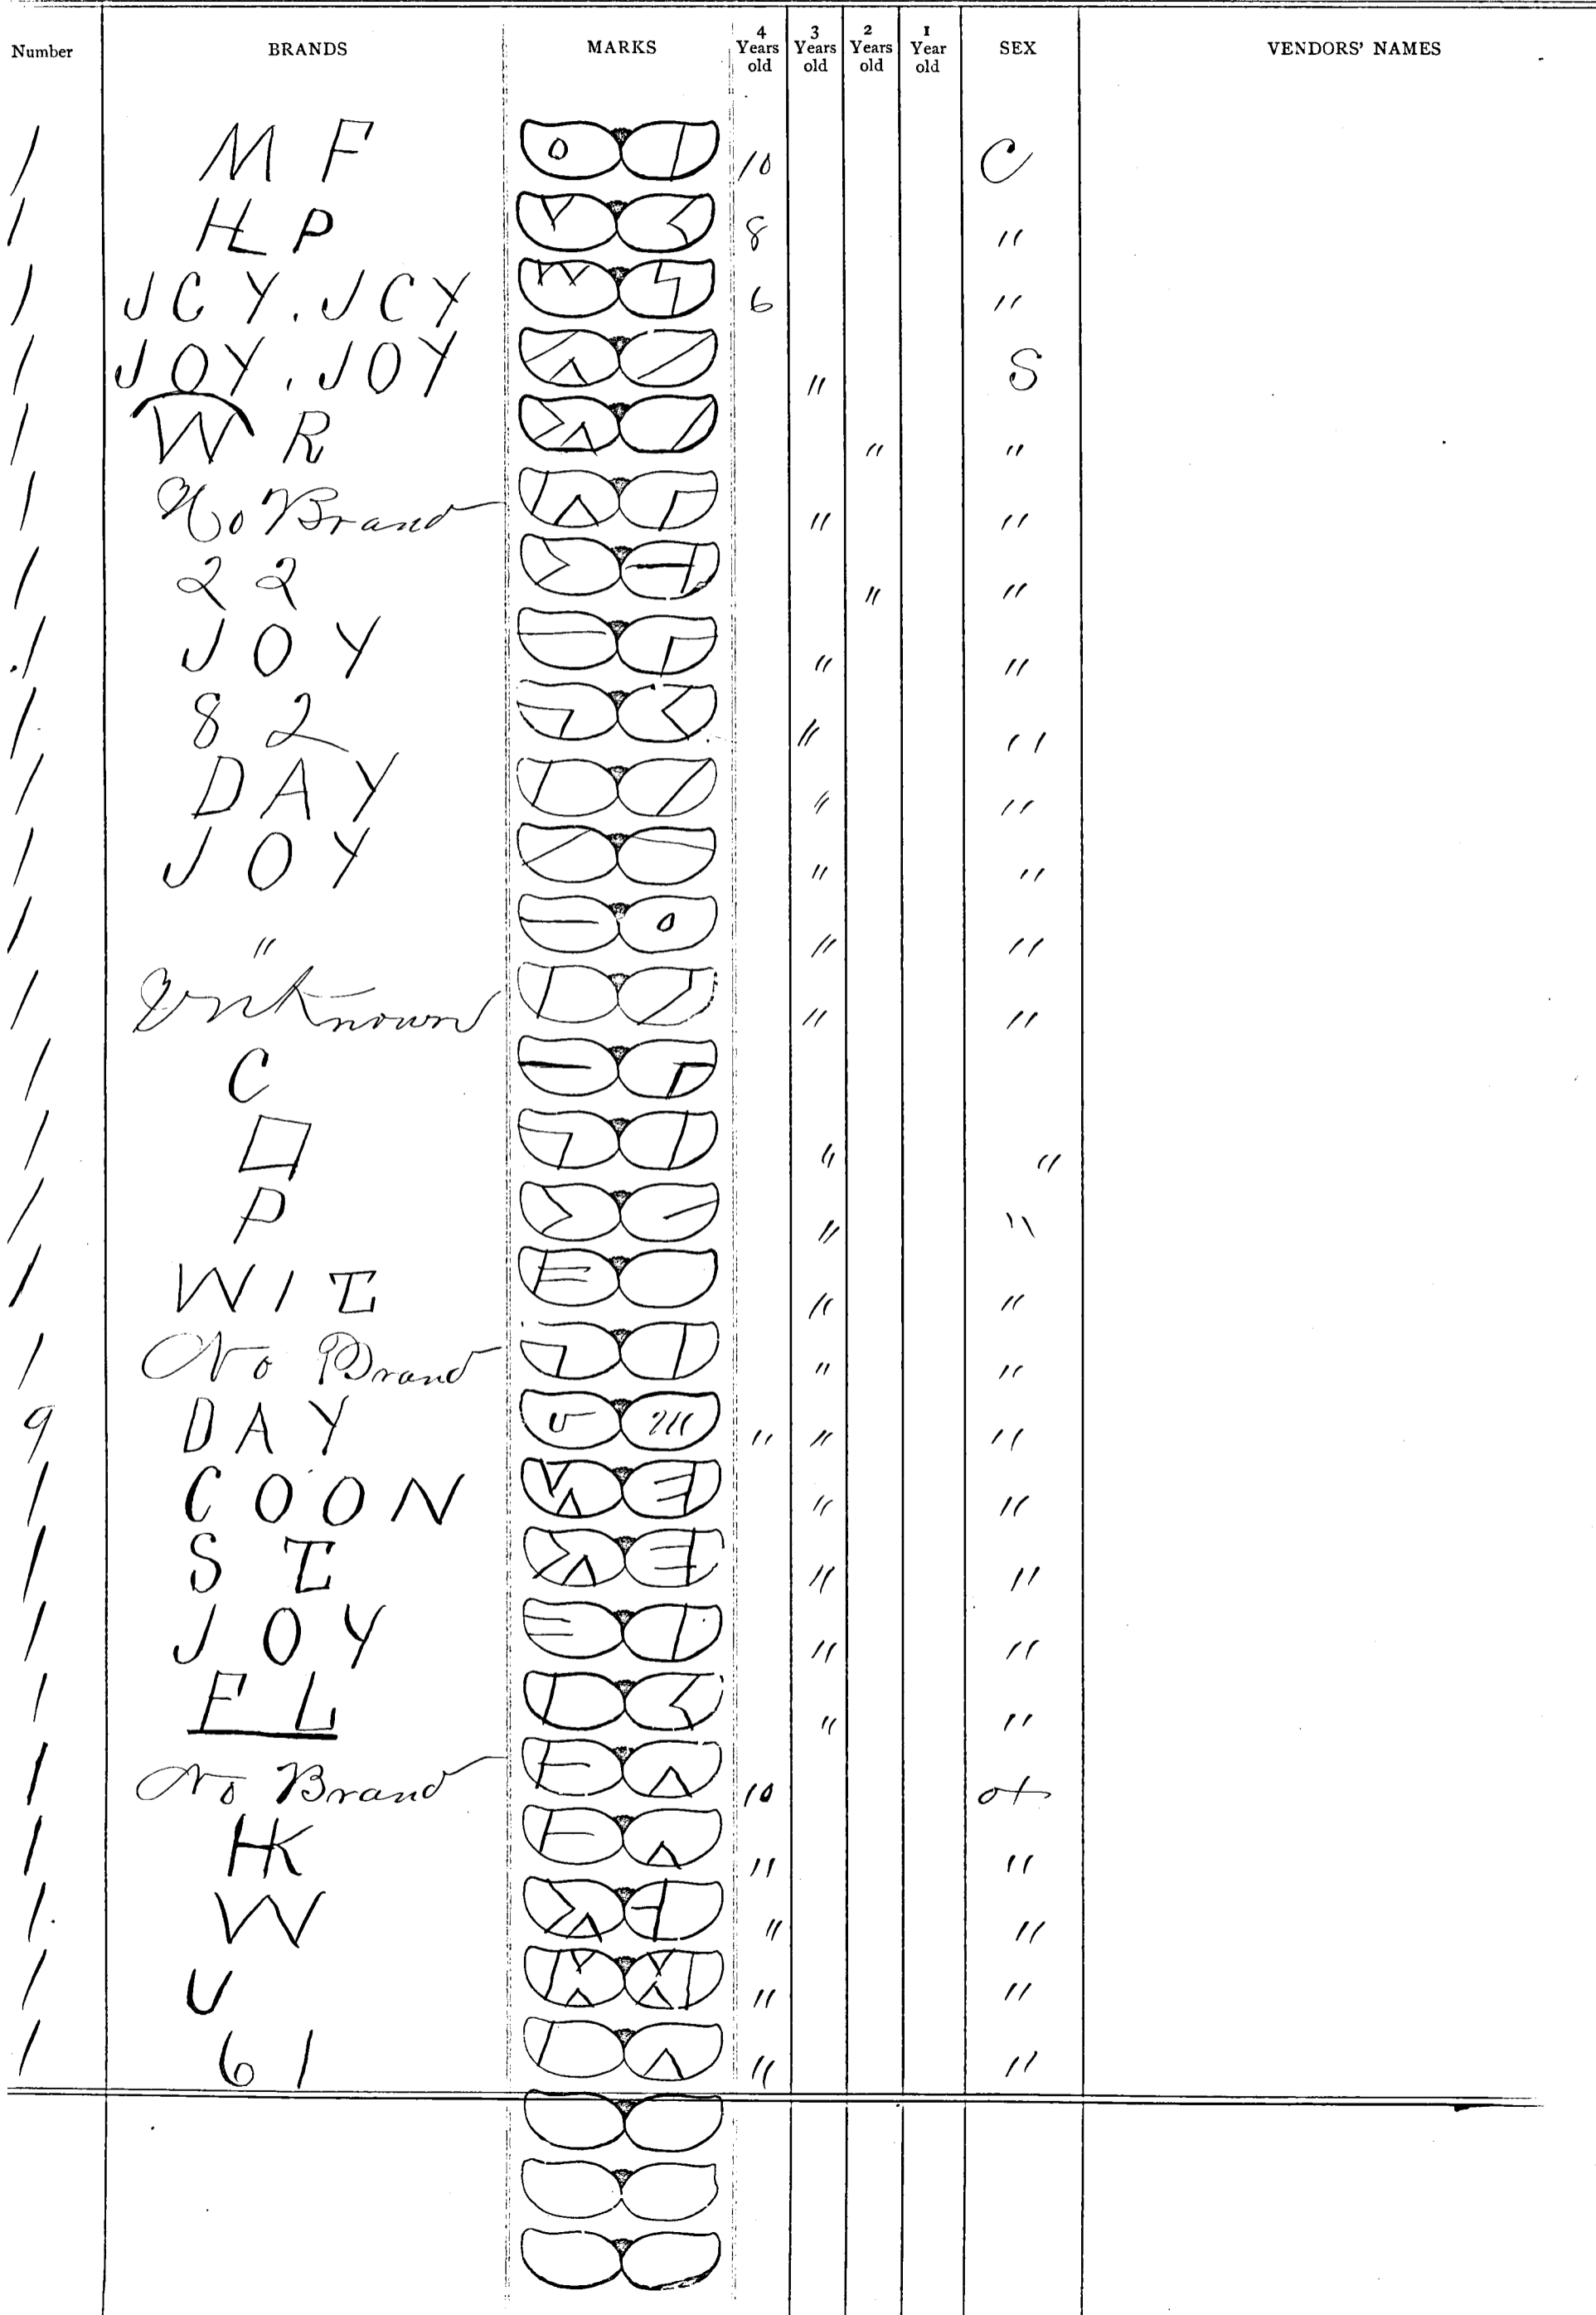 Number BRANDS MARKS 4 Years old 3 Years old 2 Years old 1 Year old SEX VENDORS' NAMES
1 M F 10 C
1 HL P 8 "
1 JCY. JCY 6 "
1 JOY. JOY " S
1 W R " "
1 No Brand " "
1 22 " "
1 JOY " "
1 82 " "
1 DAY " "
1 JOY " "
1 " " "
1 Unknown " "
1 C
1 □ " "
1 P " "
1 WIT " "
1 No Brand " "
9 DAY " " "
1 COON " "
1 S T " "
1 JOY " "
1 F L " "
1 No Brand 10 ox
1 HK " "
1 W " "
1 U " "
1 61 " "